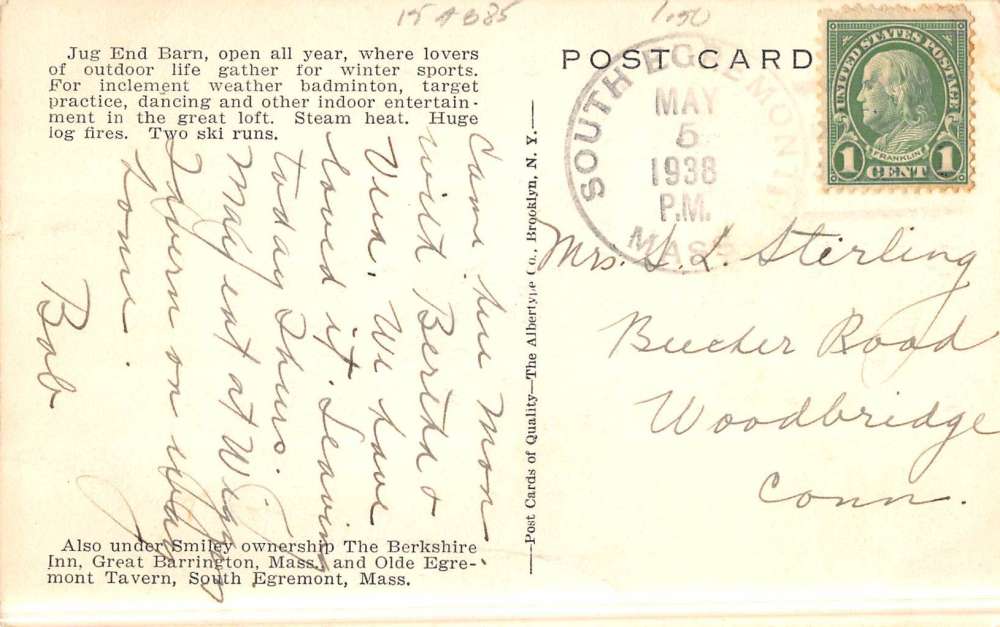 15 A 385
1.50
Jug End Barn, open all year, where lovers
of outdoor life gather for winter sports.
For inclement weather badminton, target
practice, dancing and other indoor entertain-
ment in the great loft. Steam heat. Huge
log fires. Two ski runs.
Came here Mon.
with Bertha &
Vera. We have
loved it. Leaving
today Thurs.
May eat at
Tavern on way
home.
Bob
Also under Smiley ownership The Berkshire
Inn, Great Barrington, Mass. and Olde Egre-
mont Tavern, South Egremont, Mass.
—Post Cards of Quality—The Albertype Co., Brooklyn, N. Y.—
POST CARD
SOUTH EGREMONT
MAY
5
1938
P.M.
MASS
UNITED STATES POSTAGE
FRANKLIN
1 CENT 1
Mrs. S. L. Sterling
Beecher Road
Woodbridge
Conn.